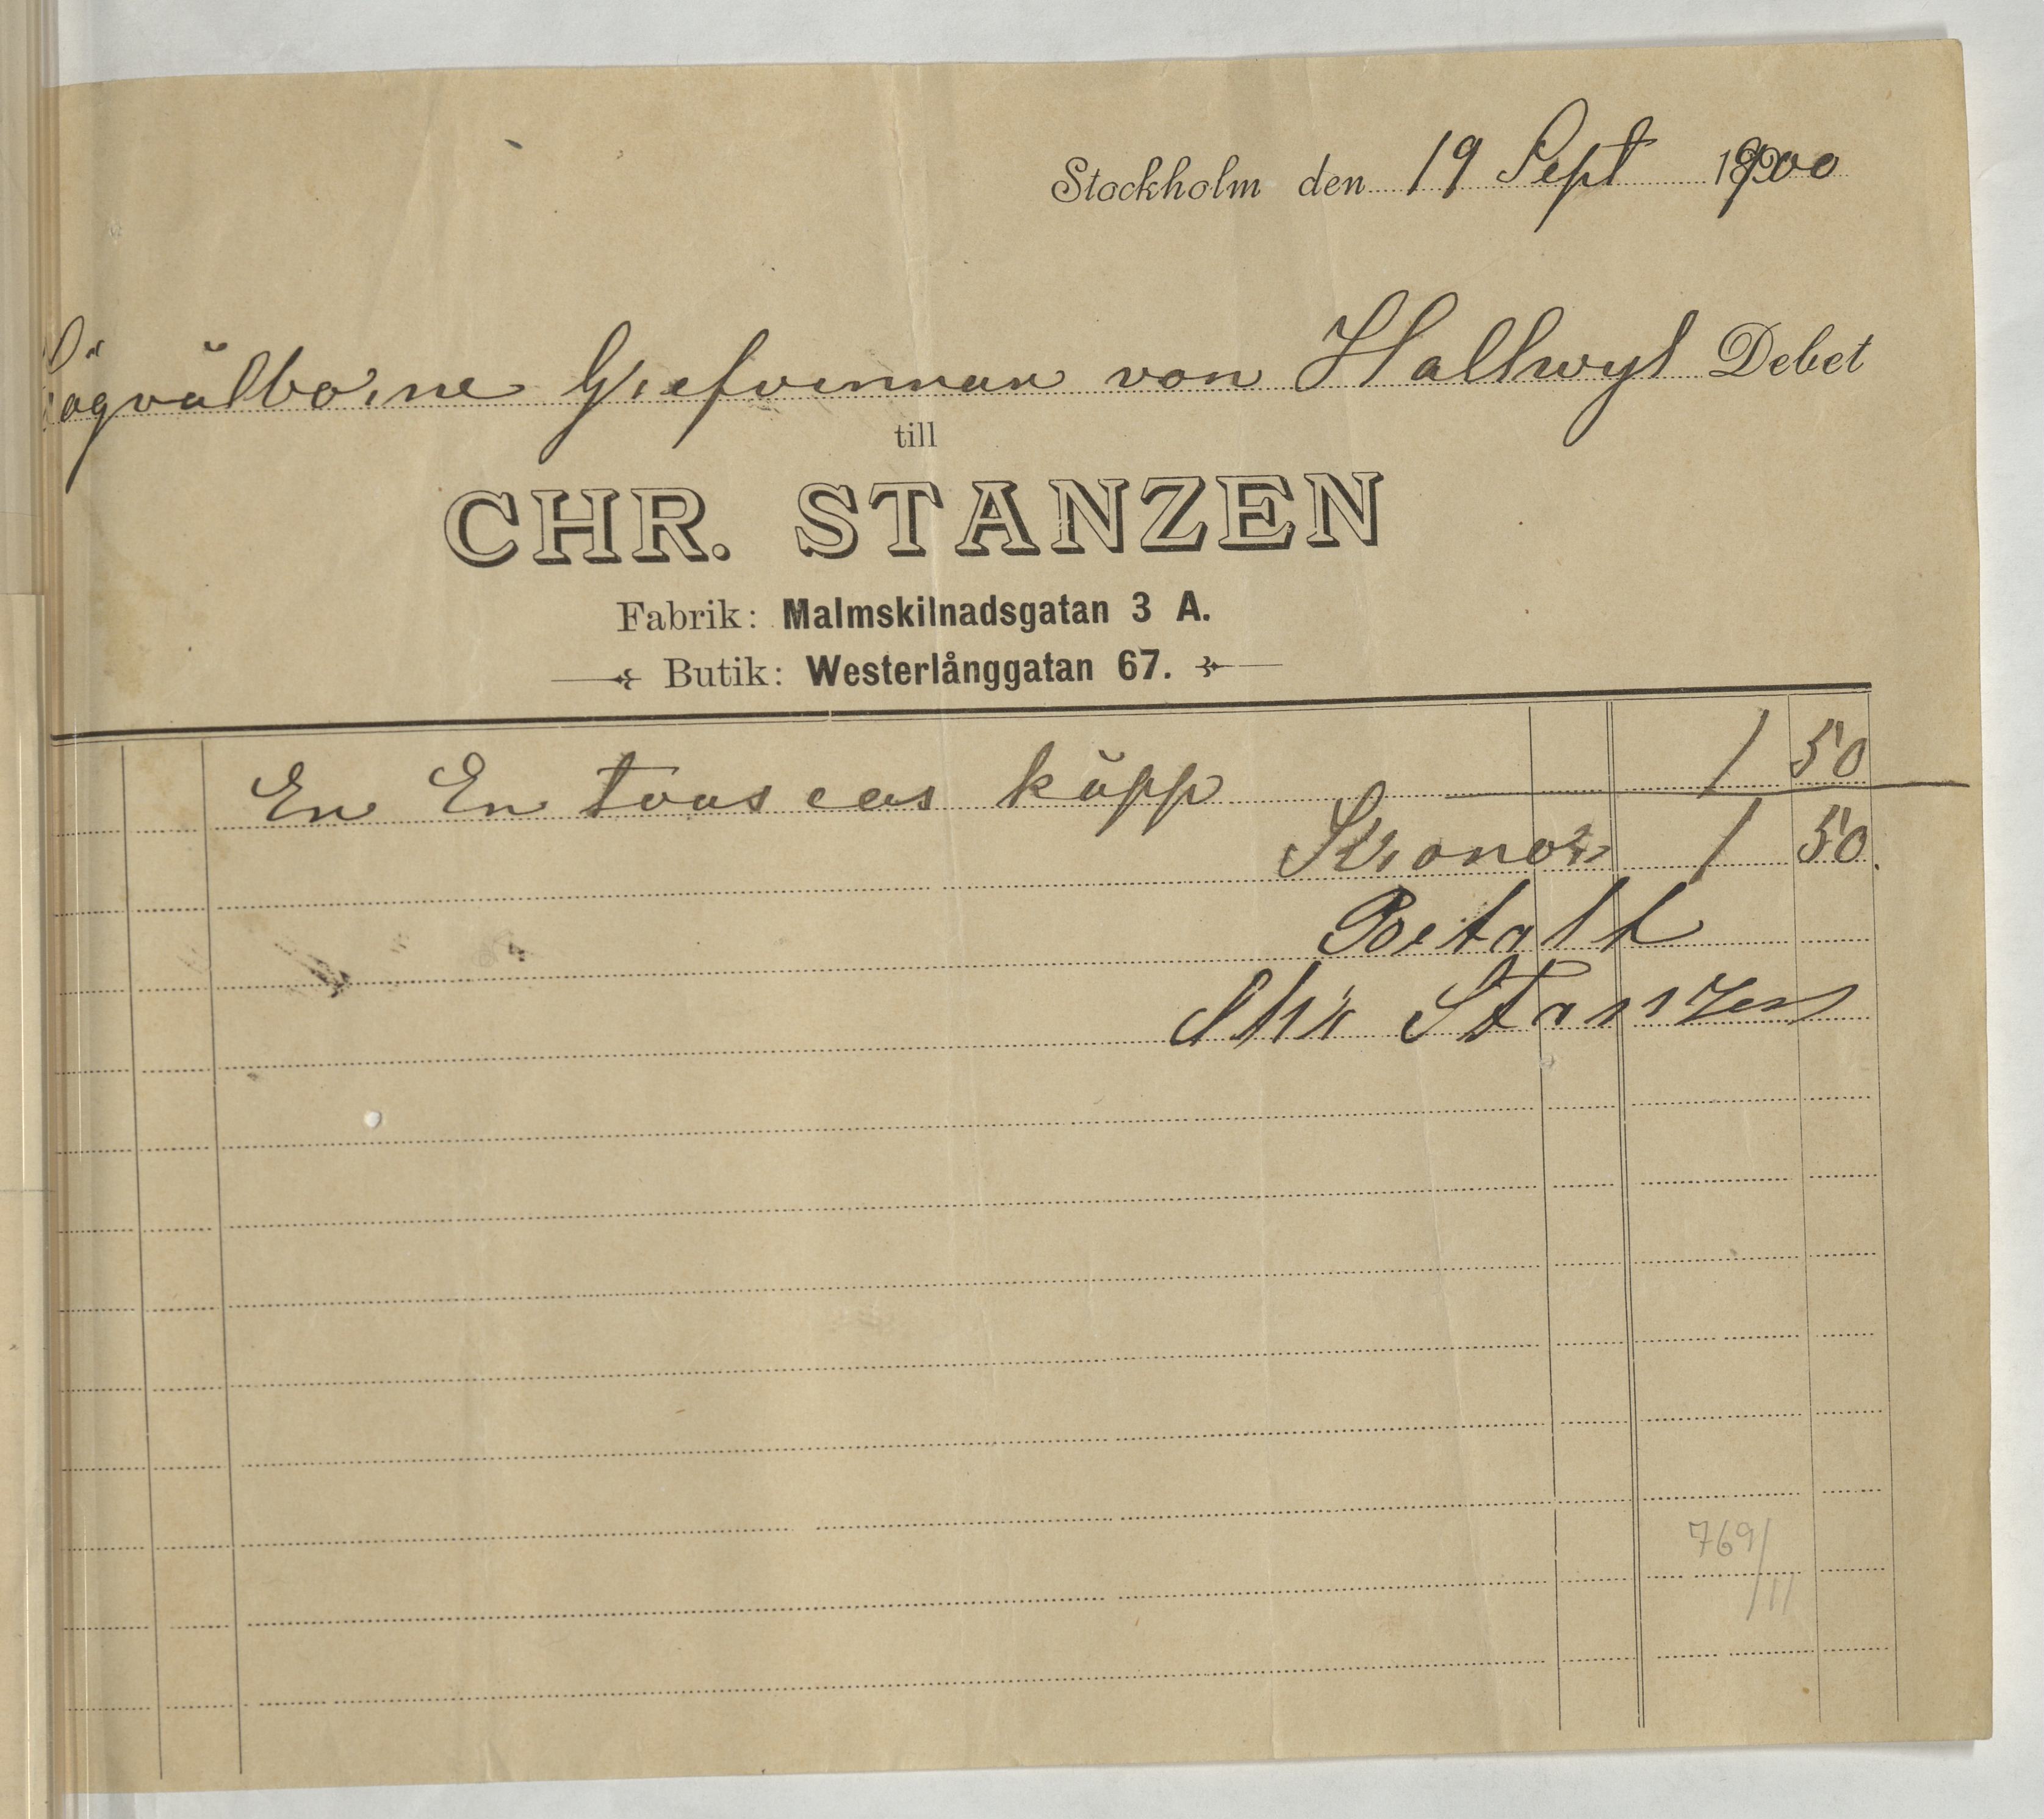 Stockholm den 19 Sept 1900
Högvälborne Grefvinnan von Hallwyl Debet
till
CHR. STANZEN
Fabrik: Malmskilnadsgatan 3 A.
Butik: Westerlånggatan 67.
En En tous cas käpp 1 50
Kronor 1 50.
Betalt
Chr Stanzen
769/11